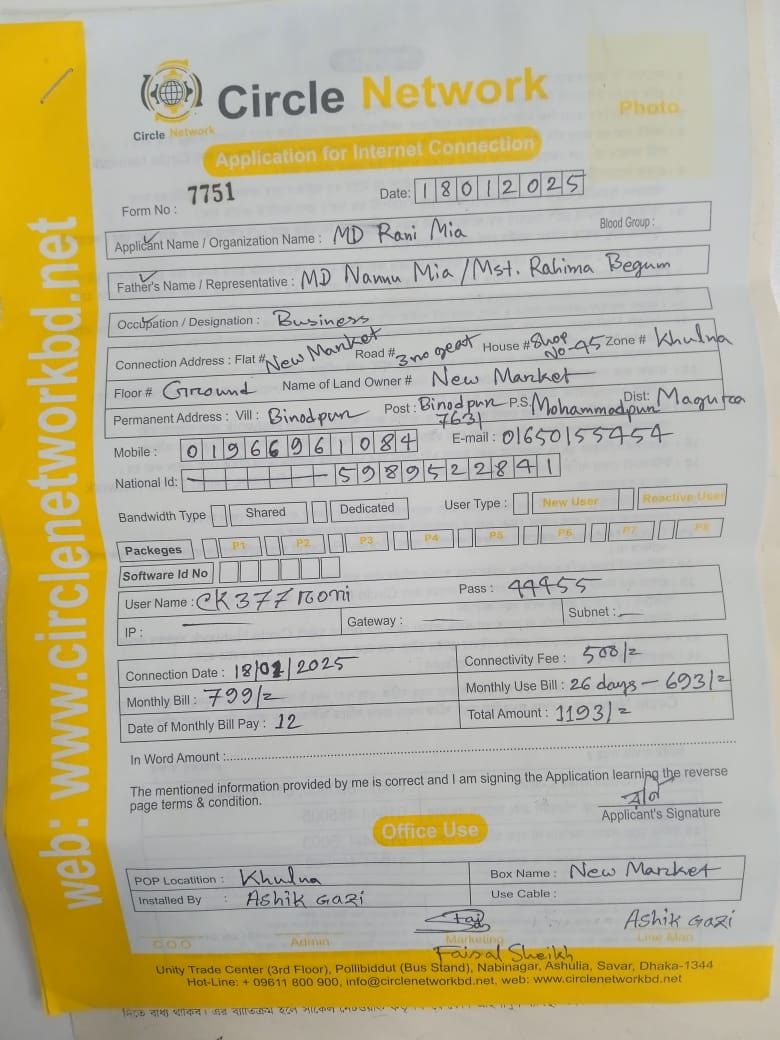 Circle Network
Circle Network
Photo
Application for Internet Connection
Form No : 7751
Date: 18012025
Applicant Name / Organization Name : MD Rani Mia
Blood Group :
Father's Name / Representative : MD Nannu Mia / Mst. Rahima Begum
Occupation / Designation : Business
Connection Address : Flat # New Market Road # 3 no geat House # Shop No-45 Zone # Khulna
Floor # Ground Name of Land Owner # New Market
Permanent Address : Vill : Binodpur Post : Binodpur 7631 P.S. Mohammadpur Dist: Magura
Mobile : 01966961084 E-mail : 01650155454
National Id: 5989522841
Bandwidth Type Shared Dedicated User Type : New User Reactive User
Packeges P1 P2 P3 P4 P5 P6 P7 P8
Software Id No
User Name : CK377Roni Pass : 44455
IP : Gateway : Subnet :
Connection Date : 18/01/2025 Connectivity Fee : 500/=
Monthly Bill : 799/= Monthly Use Bill : 26 days - 693/=
Date of Monthly Bill Pay : 12 Total Amount : 1193/=
In Word Amount :
The mentioned information provided by me is correct and I am signing the Application learning the reverse
page terms & condition.
Applicant's Signature
Office Use
POP Locatition : Khulna Box Name : New Market
Installed By : Ashik Gazi Use Cable :
Ashik Gazi
C.O.O Admin Marketing Line Man
Faisal Sheikh
Unity Trade Center (3rd Floor), Pollibiddut (Bus Stand), Nabinagar, Ashulia, Savar, Dhaka-1344
Hot-Line: + 09611 800 900, info@circlenetworkbd.net, web: www.circlenetworkbd.net
web: www.circlenetworkbd.net